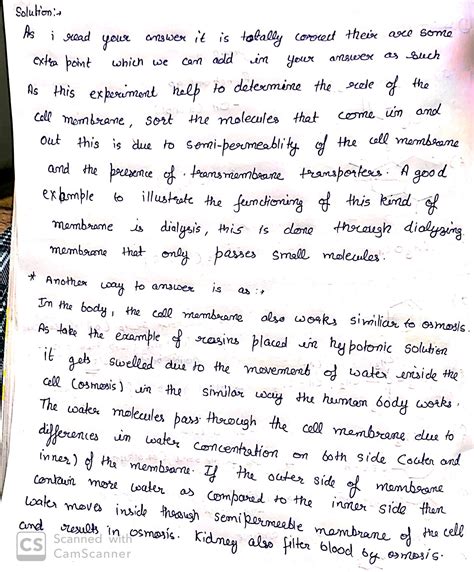 Solution:→
As i read your answer it is totally correct their are some
extra point which we can add in your answer as such
As this experiment help to determine the role of the
cell membrane, sort the molecules that come in and
out this is due to semi-permeability of the cell membrane
and the presence of transmembrane transporters. A good
example to illustrate the functioning of this kind of
membrane is dialysis, this is done through dialyzing
membrane that only passes small molecules.
* Another way to answer is as:→
In the body, the cell membrane also works similiar to osmosis.
As take the example of rasins placed in hypotonic solution
it gets swelled due to the movement of water inside the
cell (osmosis) in the similar way the human body works.
The water molecules pass through the cell membrane due to
differences in water concentration on both side (outer and
inner) of the membrane. If the outer side of membrane
contain more water as compared to the inner side then
water moves inside through semipermeable mambrane of the cell
and results in osmosis. Kidney also filter blood by osmosis.
CS Scanned with
CamScanner